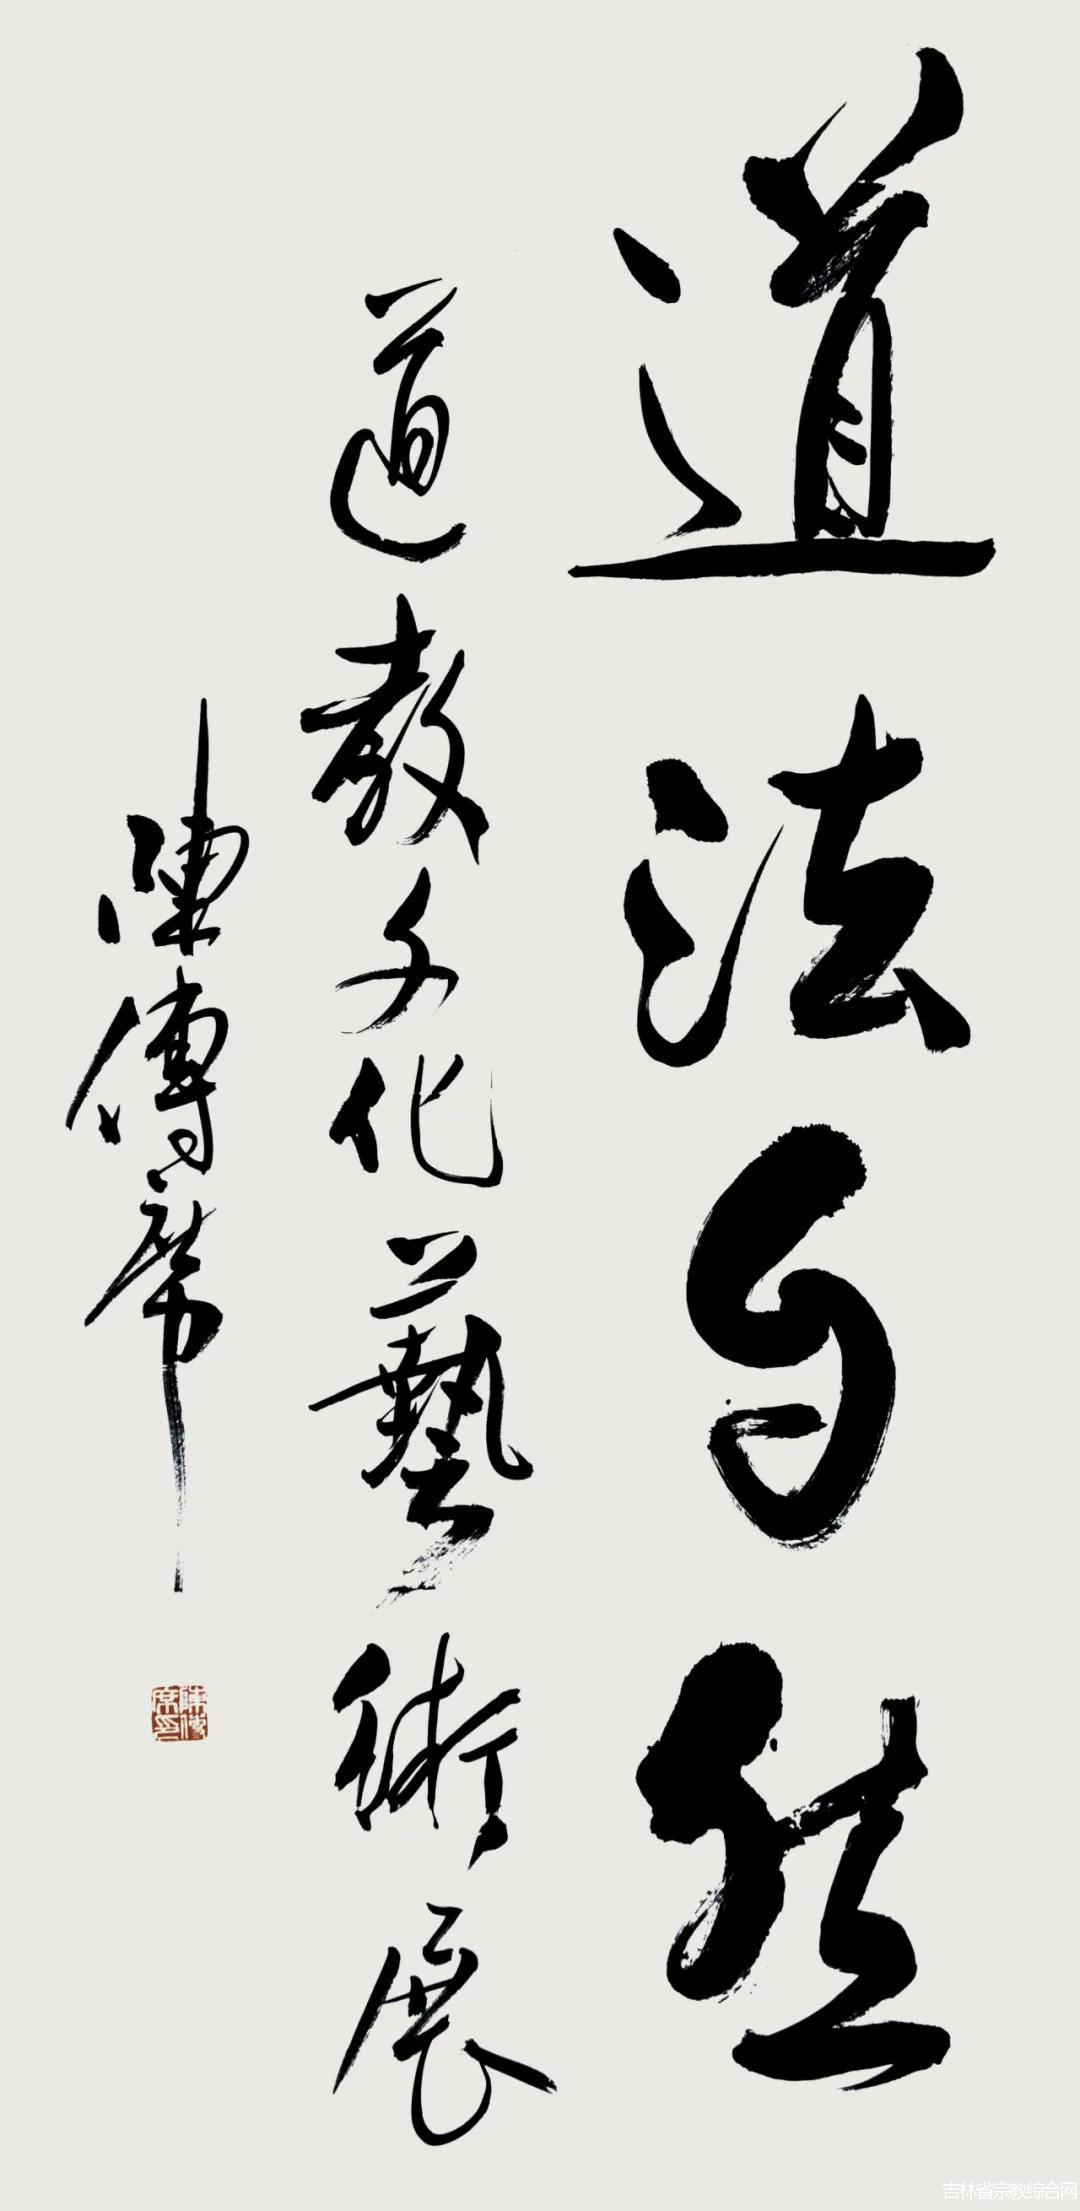 道法自然
道教文化藝術展
陳傳席
陳傳席印
吉林省宗教综合网